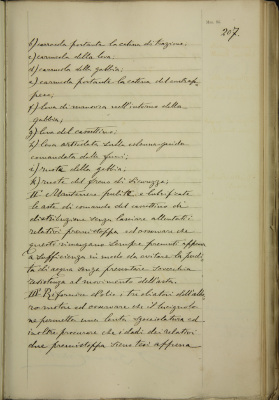 207.
b) carrucola portante la catena di trazione;
c) carrucola della leva;
d) carrucola della gabbia;
e) carrucola portante la catena del contrap-
peso;
f) leva di manovra nell'interno della
gabbia;
g) leva del cassettino;
h) leva articolata sulla colonna-guida
comandata dalle funi;
i) ruota della gabbia;
k) ruote del freno di sicurezza;
II° Mantenere pulite e lubrificate
le aste di comando del cassettino di
distribuzione senza lasciare allentati i
relativi premistoppa ed osservare che
questi rimangano sempre premuti appena
a sufficienza in modo da evitare la perdi-
ta di acqua senza presentare soverchia
resistenza al movimento dell'asta.
III° Rifornire d'olio i tre oliatori dell'albe-
ro motore ed osservare che il lucignolo
ne permetta una lenta sgocciolatura ed
inoltre procurare che i dadi dei relativi
due premistoppa siano tesi appena